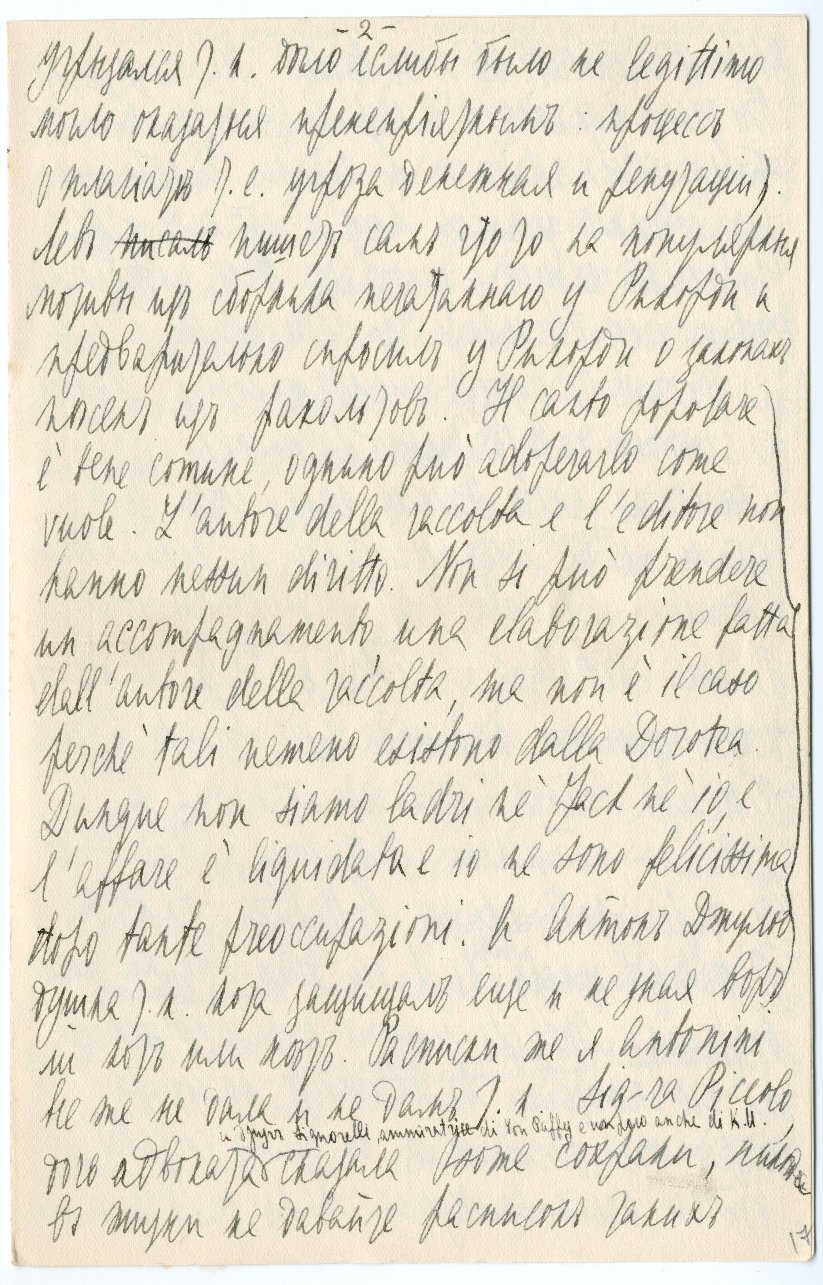 - 2 -
т. к. было если бы было не legittimo
могло оказаться : процессъ
о плагіатѣ т. е. угроза денежная и репутаціи).
Левъ писалъ пишетъ самъ что то на популярныя
мотивы изъ сборника печатаннаго у Рикорди и
предварительно спросилъ у Рикорди о законахъ
пѣсенъ изъ раккольтовъ. Il canto popolare
è bene comune, ognuno può adoperarlo come
vuole. L'autore della raccolta e l'editore non
hanno nessun diritto. Non si può prendere
un accompagnamento, una elaborazione fatta
dall'autore della raccolta, ma non è il caso
perchè tali nemeno esistono dalla Dorotea.
Dunque non siamo ladri nè Jack nè io, e
l'affare è liquidata e io ne sono felicissima
dopo tante preoccupazioni. А Антонъ
душка т. к. тогда защищалъ еще и не зная воръ
ли котъ или нѣтъ. Расписки же я Antonini
все же не дала и не дамъ т. к. Sig-ra Piccolo,
и другъ Signorelli, ammiratrice di Von Püffy e uno zio anche di K.U.
того адвоката сказала боже сохрани, никогда
въ жизни не давайте расписокъ такихъ
17